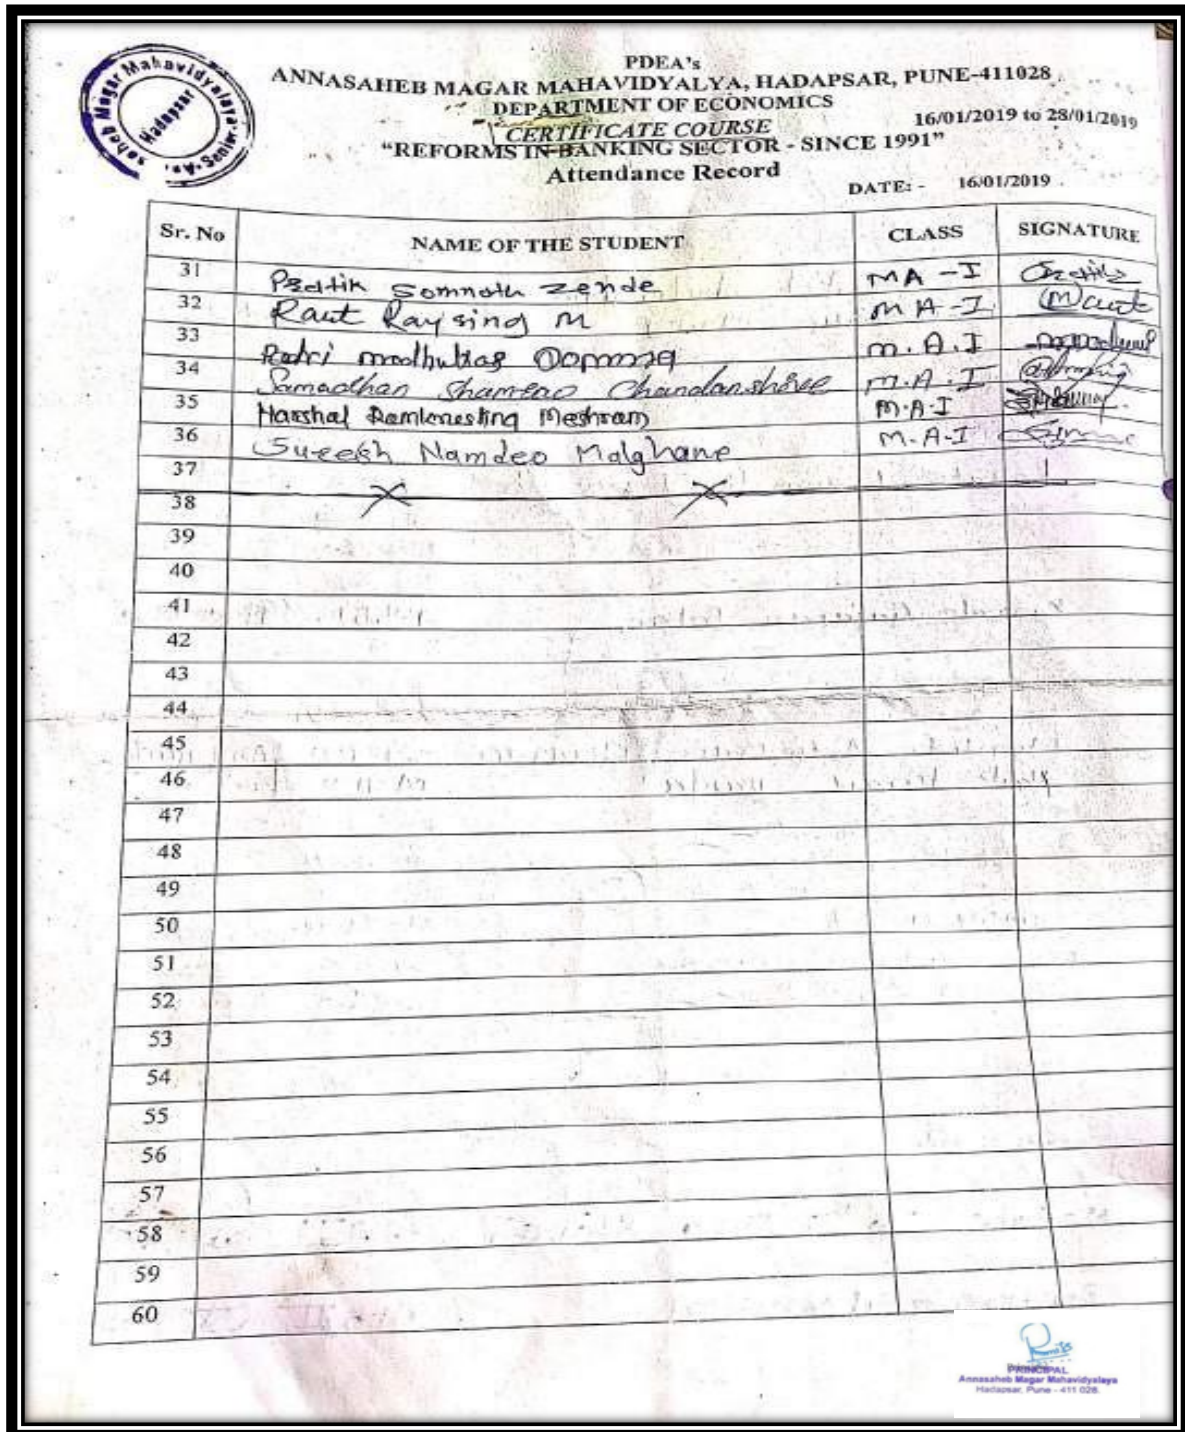 PDEA's
ANNASAHEB MAGAR MAHAVIDYALYA, HADAPSAR, PUNE-411028
DEPARTMENT OF ECONOMICS
CERTIFICATE COURSE 16/01/2019 to 28/01/2019
"REFORMS IN BANKING SECTOR - SINCE 1991"
Attendance Record
DATE: - 16/01/2019
Sr. No NAME OF THE STUDENT CLASS SIGNATURE
31 Pratik Somnath Zende MA - I
32 Raut Raysing M M A - I
33 M.A.I
34 Samadhan Shamrao Chandanshive M.A.I
35 Harshal Meshram M.A-I
36 Suresh Namdeo Malghane M.A-I
37
38
39
40
41
42
43
44
45
46
47
48
49
50
51
52
53
54
55
56
57
58
59
60
PRINCIPAL
Annasaheb Magar Mahavidyalaya
Hadapsar, Pune - 411 028.